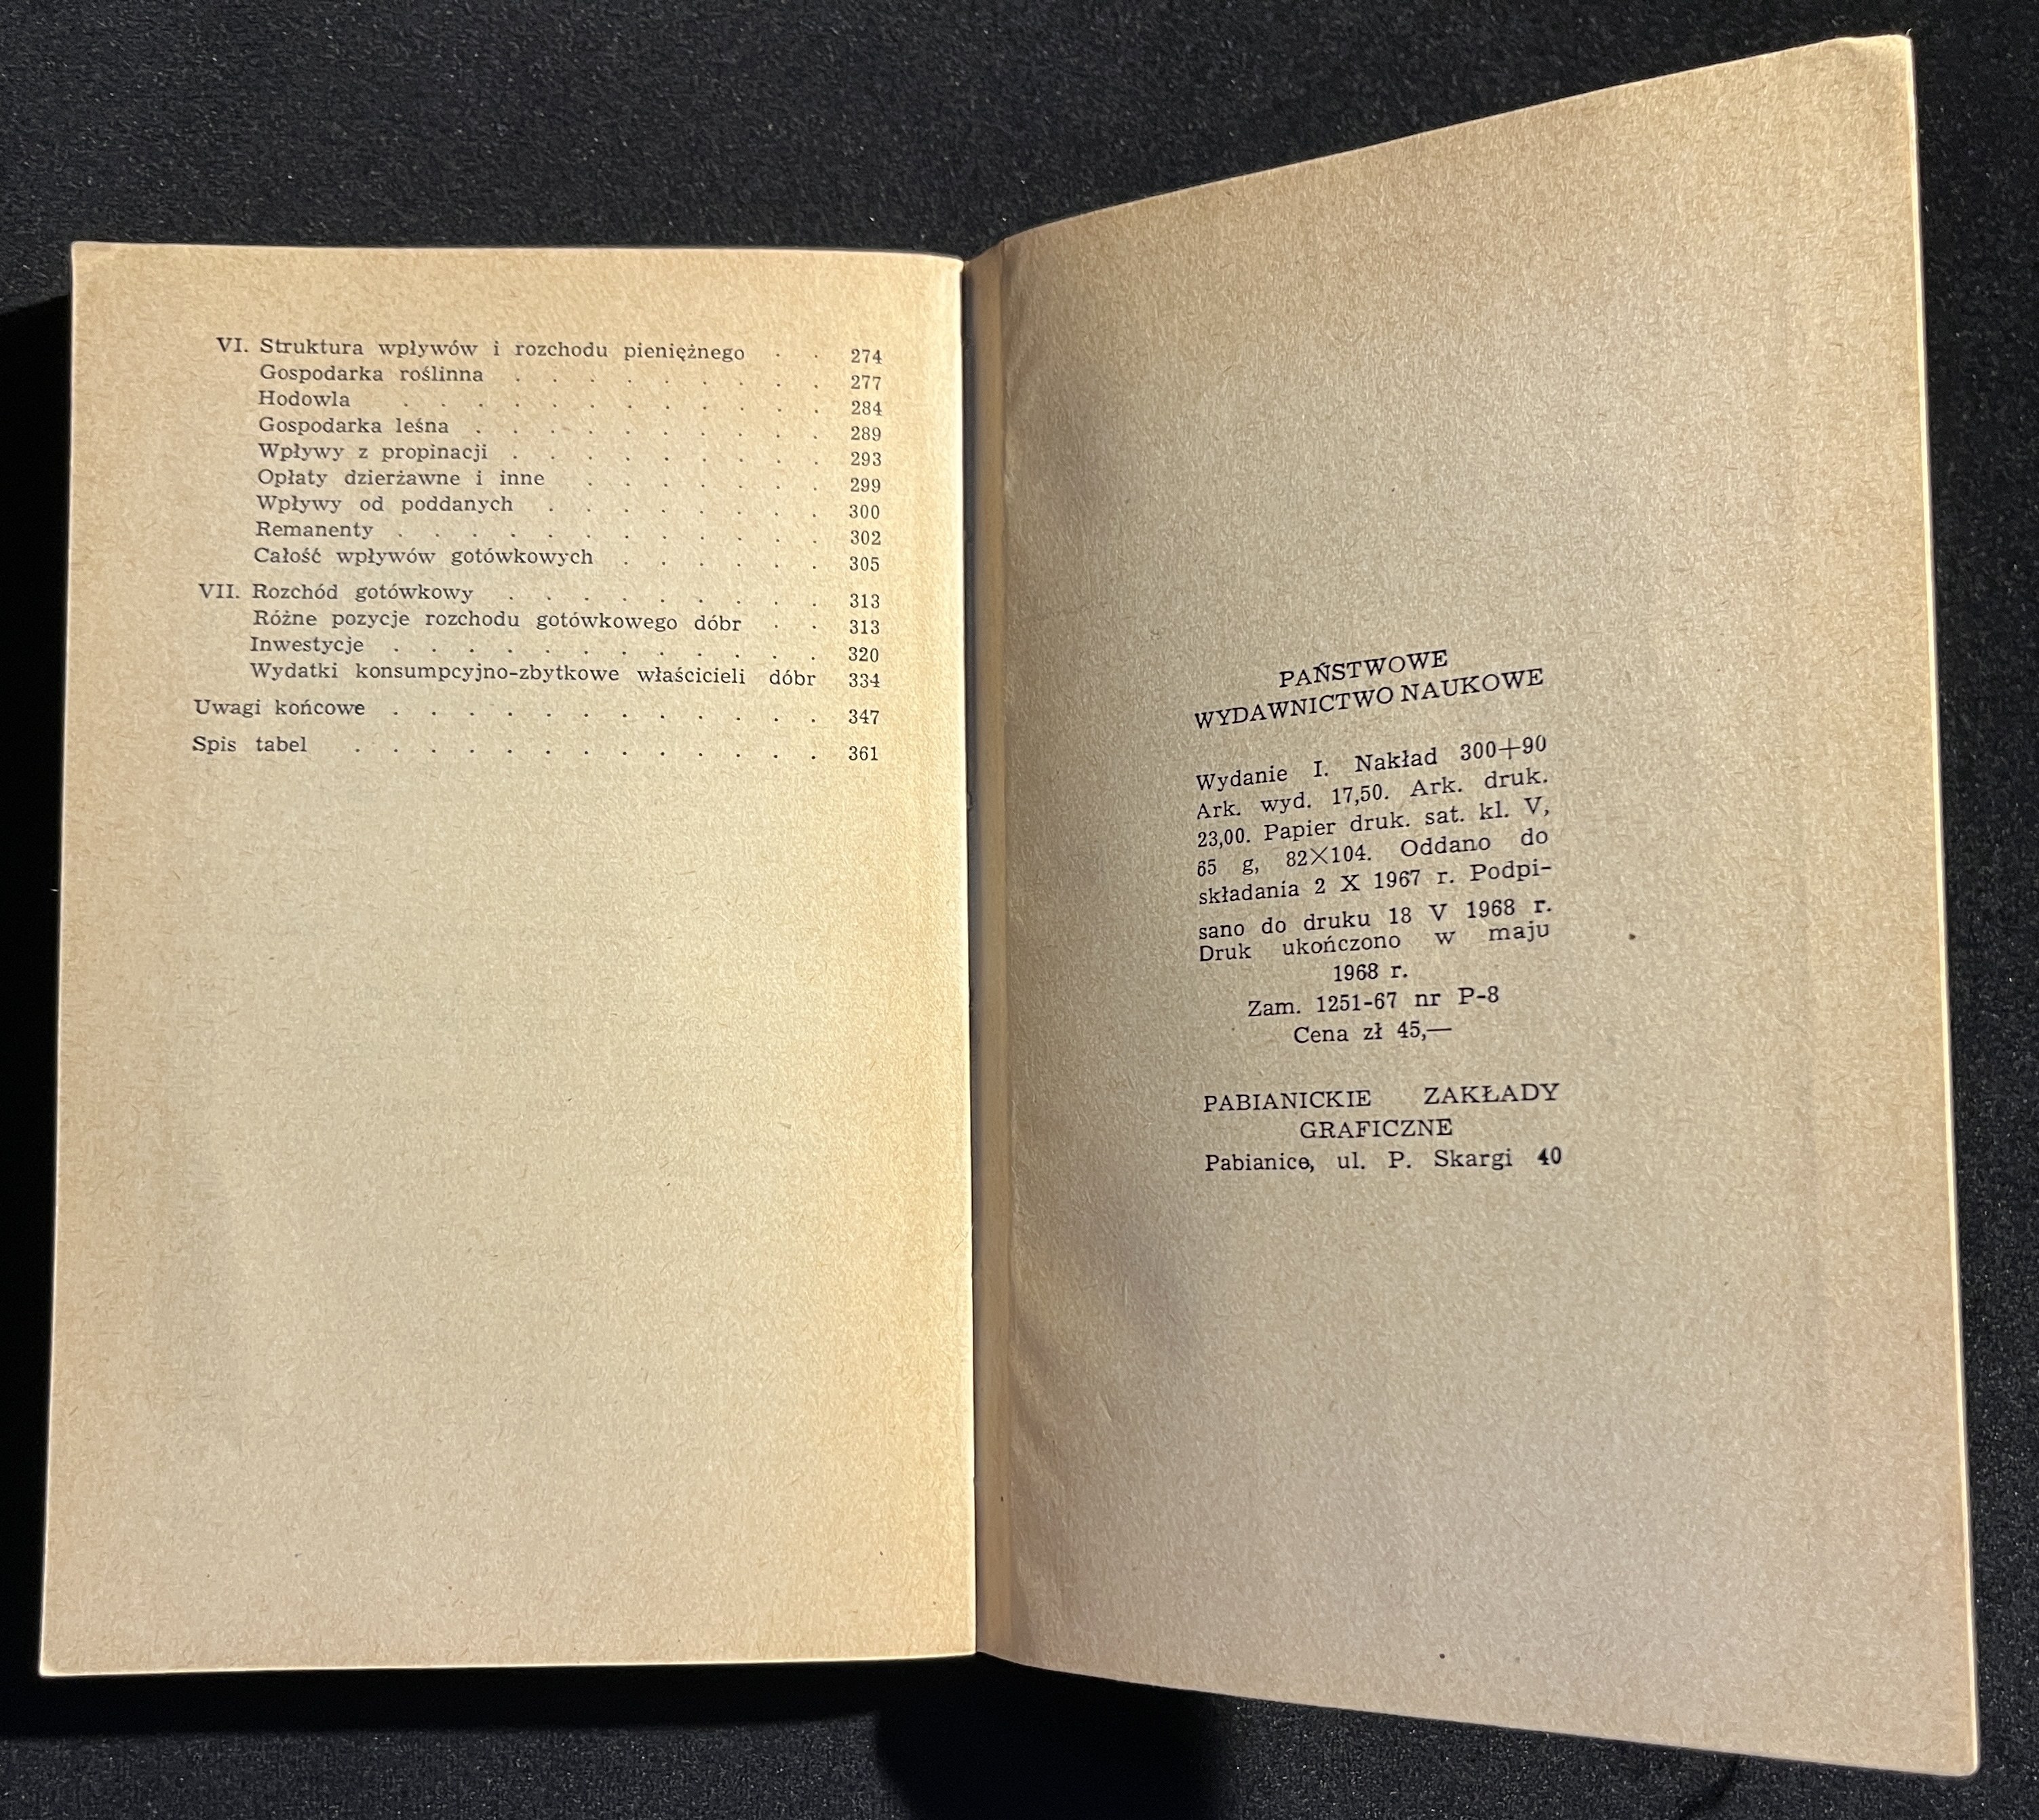 VI. Struktura wpływów i rozchodu pieniężnego . . 274
Gospodarka roślinna . . . . . . . . . 277
Hodowla . . . . . . . . . . . . 284
Gospodarka leśna . . . . . . . . . . 289
Wpływy z propinacji . . . . . . . . . 293
Opłaty dzierżawne i inne . . . . . . . 299
Wpływy od poddanych . . . . . . . . 300
Remanenty . . . . . . . . . . . . 302
Całość wpływów gotówkowych . . . . . . 305
VII. Rozchód gotówkowy . . . . . . . . . 313
Różne pozycje rozchodu gotówkowego dóbr . . 313
Inwestycje . . . . . . . . . . . . 320
Wydatki konsumpcyjno-zbytkowe właścicieli dóbr 334
Uwagi końcowe . . . . . . . . . . . . 347
Spis tabel . . . . . . . . . . . . . 361
PAŃSTWOWE
WYDAWNICTWO NAUKOWE
Wydanie I. Nakład 300+90
Ark. wyd. 17,50. Ark. druk.
23,00. Papier druk. sat. kl. V,
65 g, 82×104. Oddano do
składania 2 X 1967 r. Podpi-
sano do druku 18 V 1968 r.
Druk ukończono w maju
1968 r.
Zam. 1251-67 nr P-8
Cena zł 45,—
PABIANICKIE ZAKŁADY
GRAFICZNE
Pabianice, ul. P. Skargi 40